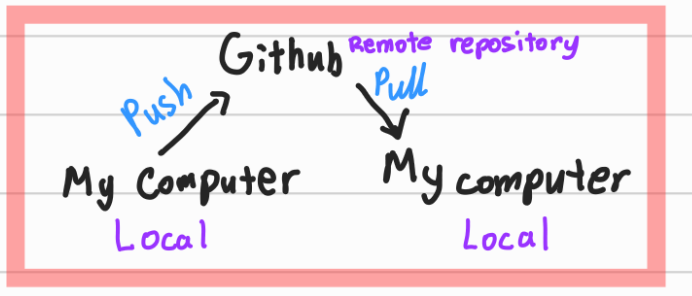 Github Remote repository
Push Pull
My Computer My computer
Local Local